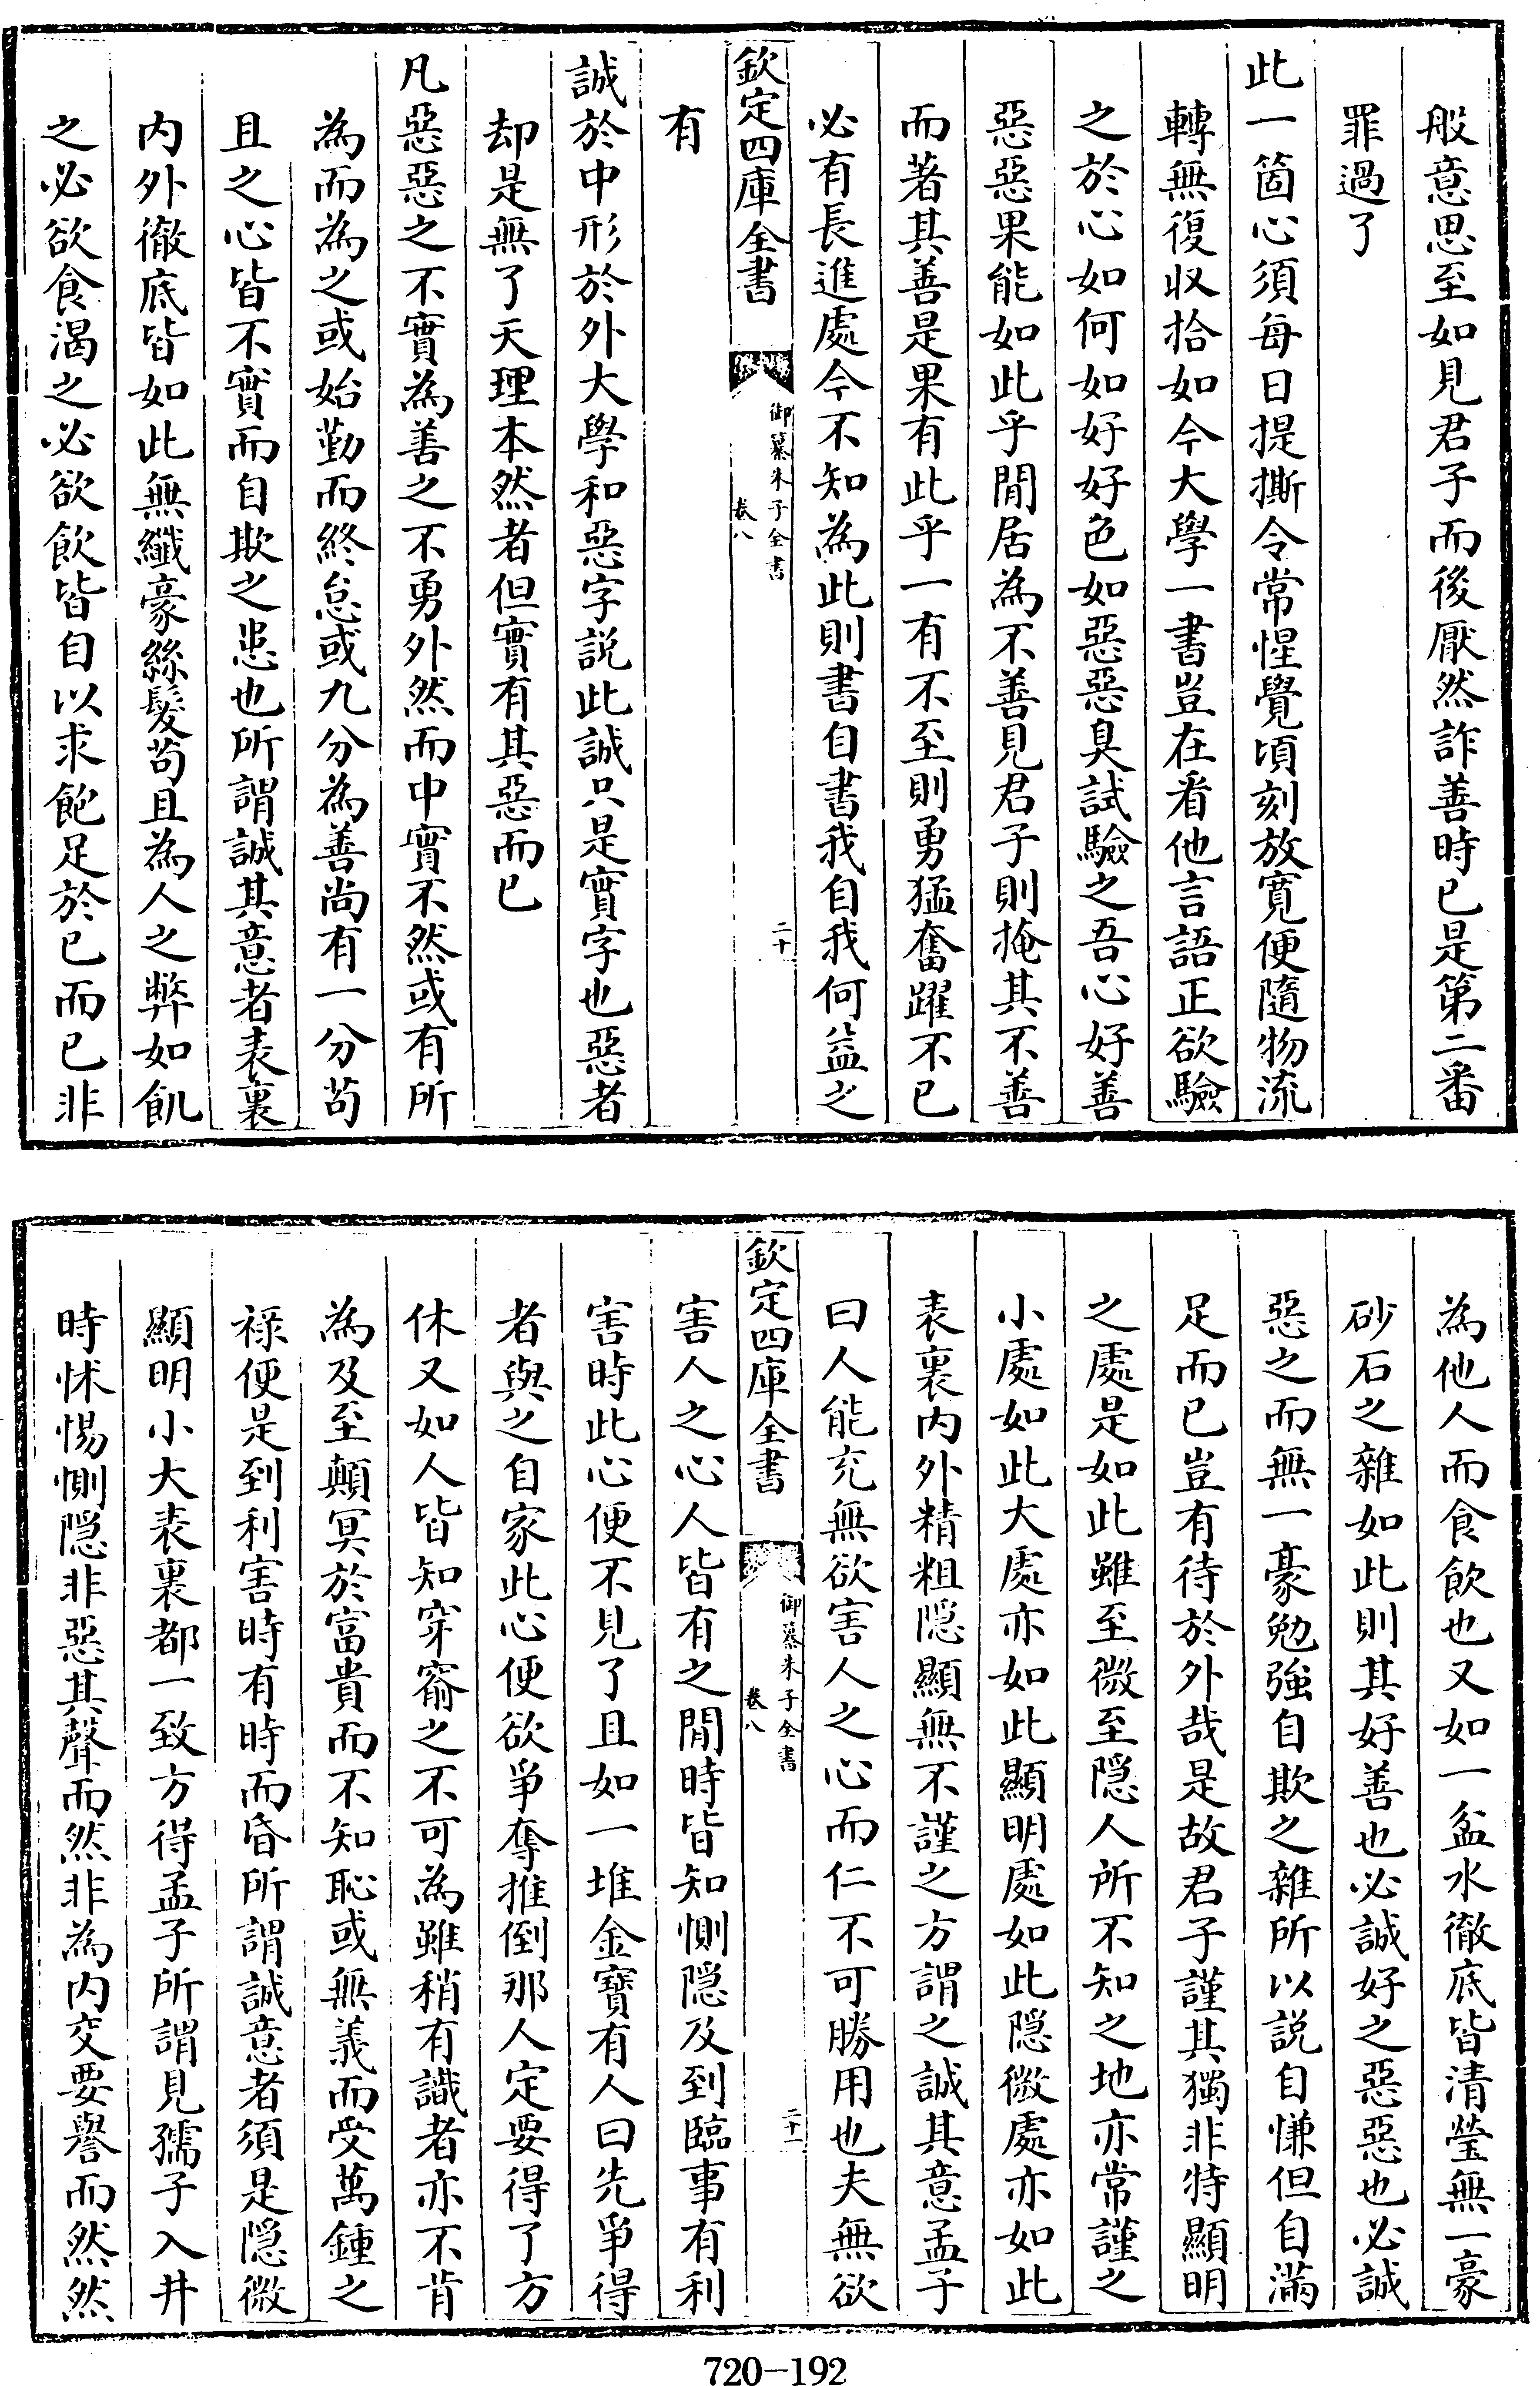 般意思至如見君子而後厭然詐善時已是第二番
罪過了
此一箇心須每日提撕令常惺覺頃刻放寛便隨物流
轉無復收拾如今大學一書豈在看他言語正欲驗
之於心如何如好好色如惡惡臭試驗之吾心好善
惡惡果能如此乎閒居為不善見君子則掩其不善
而著其善是果有此乎一有不至則勇猛奮躍不已
必有長進處今不知為此則書自書我自我何益之
欽定四庫全書
御纂朱子全書
卷八
二十
有
誠於中形於外大學和惡字説此誠只是實字也惡者
却是無了天理本然者但實有其惡而已
凡惡惡之不實為善之不勇外然而中實不然或有所
為而為之或始勤而終怠或九分為善尚有一分苟
且之心皆不實而自欺之患也所謂誠其意者表裏
内外徹底皆如此無纖豪絲髮苟且為人之弊如飢
之必欲食渴之必欲飲皆自以求飽足於已而已非
為他人而食飲也又如一盆水徹底皆清瑩無一豪
砂石之雜如此則其好善也必誠好之惡惡也必誠
惡之而無一豪勉強自欺之雜所以説自慊但自滿
足而已豈有待於外哉是故君子謹其獨非特顯明
之處是如此雖至微至隠人所不知之地亦常謹之
小處如此大處亦如此顯明處如此隠微處亦如此
表裏内外精粗隠顯無不謹之方謂之誠其意孟子
曰人能充無欲害人之心而仁不可勝用也夫無欲
欽定四庫全書
御纂朱子全書
卷八
二十一
害人之心人皆有之閒時皆知惻隠及到臨事有利
害時此心便不見了且如一堆金寶有人曰先爭得
者與之自家此心便欲爭奪推倒那人定要得了方
休又如人皆知穿窬之不可為雖稍有識者亦不肯
為及至顛冥於富貴而不知恥或無義而受萬鍾之
祿便是到利害時有時而昏所謂誠意者須是隠微
顯明小大表裏都一致方得孟子所謂見孺子入井
時怵惕惻隠非惡其聲而然非為内交要譽而然然
720-192